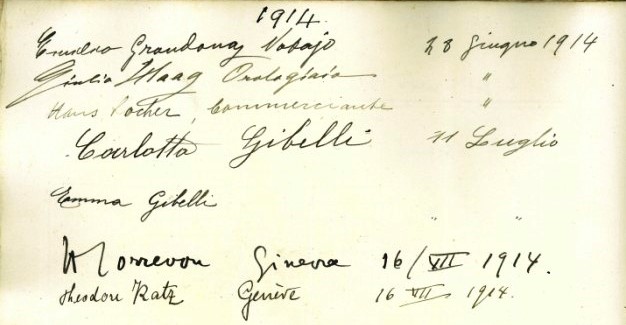 1914.
Grondona, Notajo 28 Giugno 1914
Giulio Haag Orologiaio "
Hans Locher, Commerciante "
Carlotta Gibelli 11 Luglio
Emma Gibelli " "
Morrevon Ginevra 16/VII 1914.
Theodore Katz Genève 16 VII 1914.